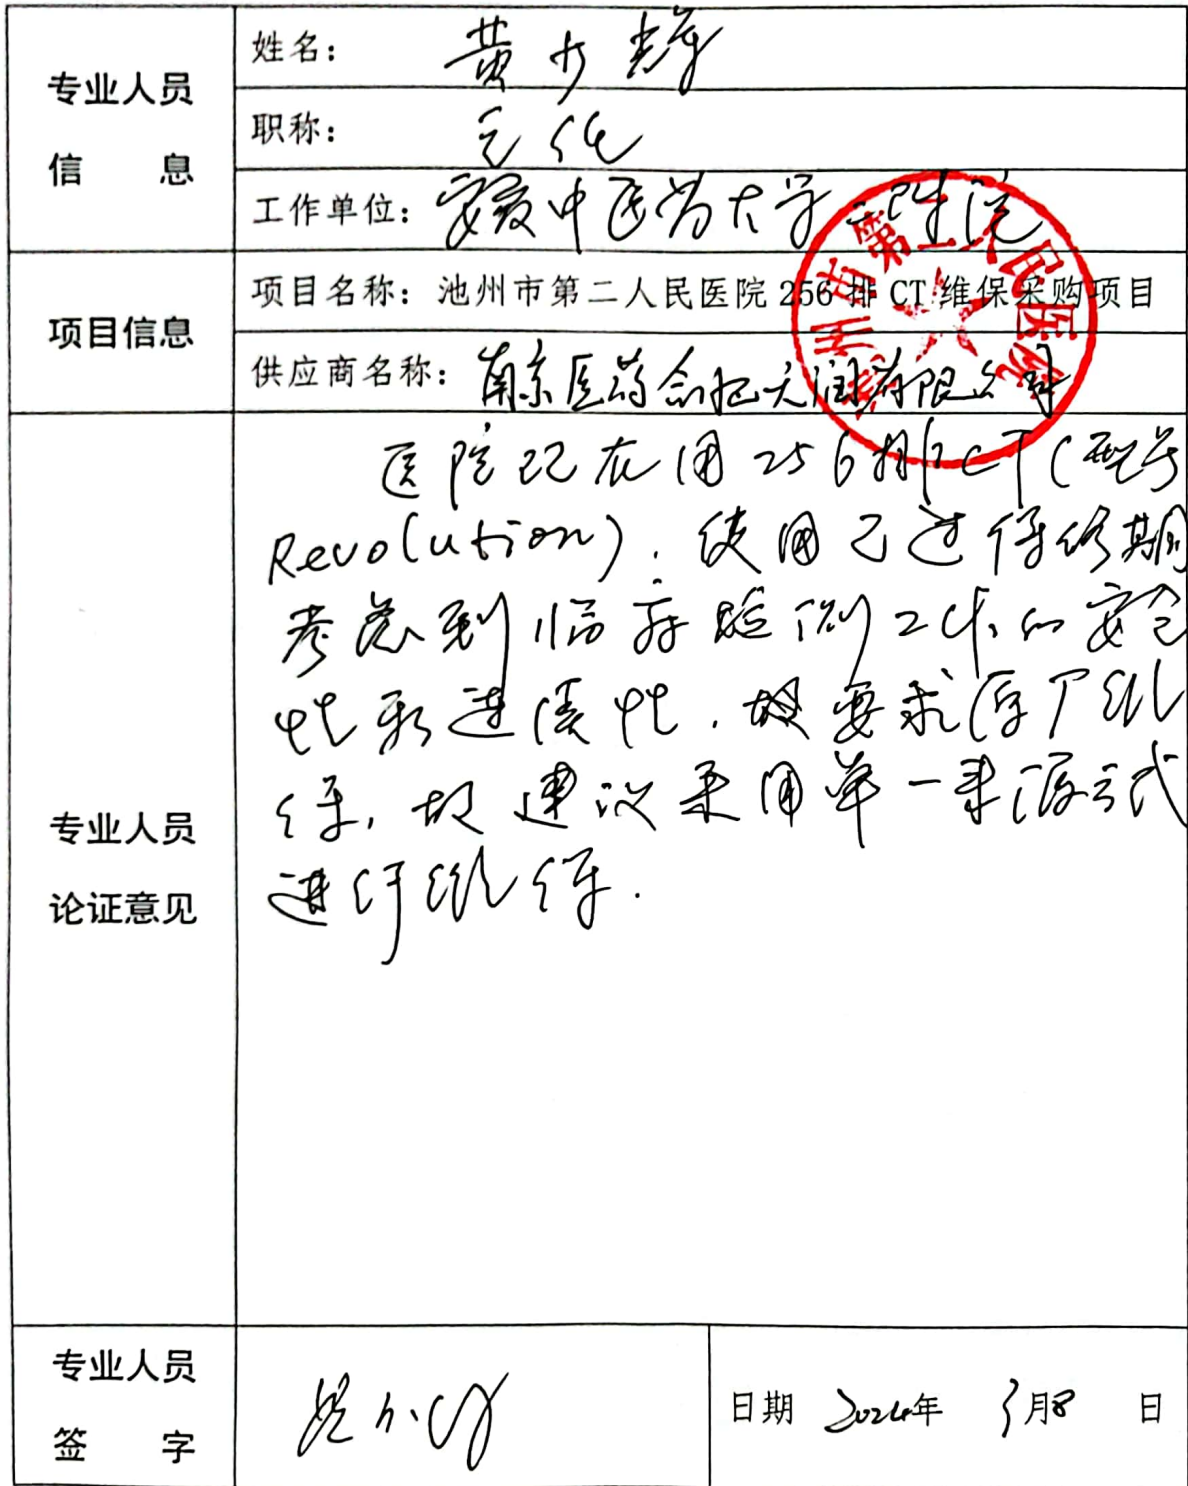 专业人员
信 息
姓名： 黄少辉
职称： 主任
工作单位： 安徽中医药大学二附院
项目信息
项目名称：池州市第二人民医院256排CT维保采购项目
供应商名称：南京医药合肥天润有限公司
池州市第二人民医院
专业人员
论证意见
医院现在用256排CT（型号
Revolution），使用已过保修期
考虑到临床检测工作的安全
性和连续性，故要求原厂维
保，故建议采用单一来源方式
进行维保.
专业人员
签 字
日期 2024年 3月8 日